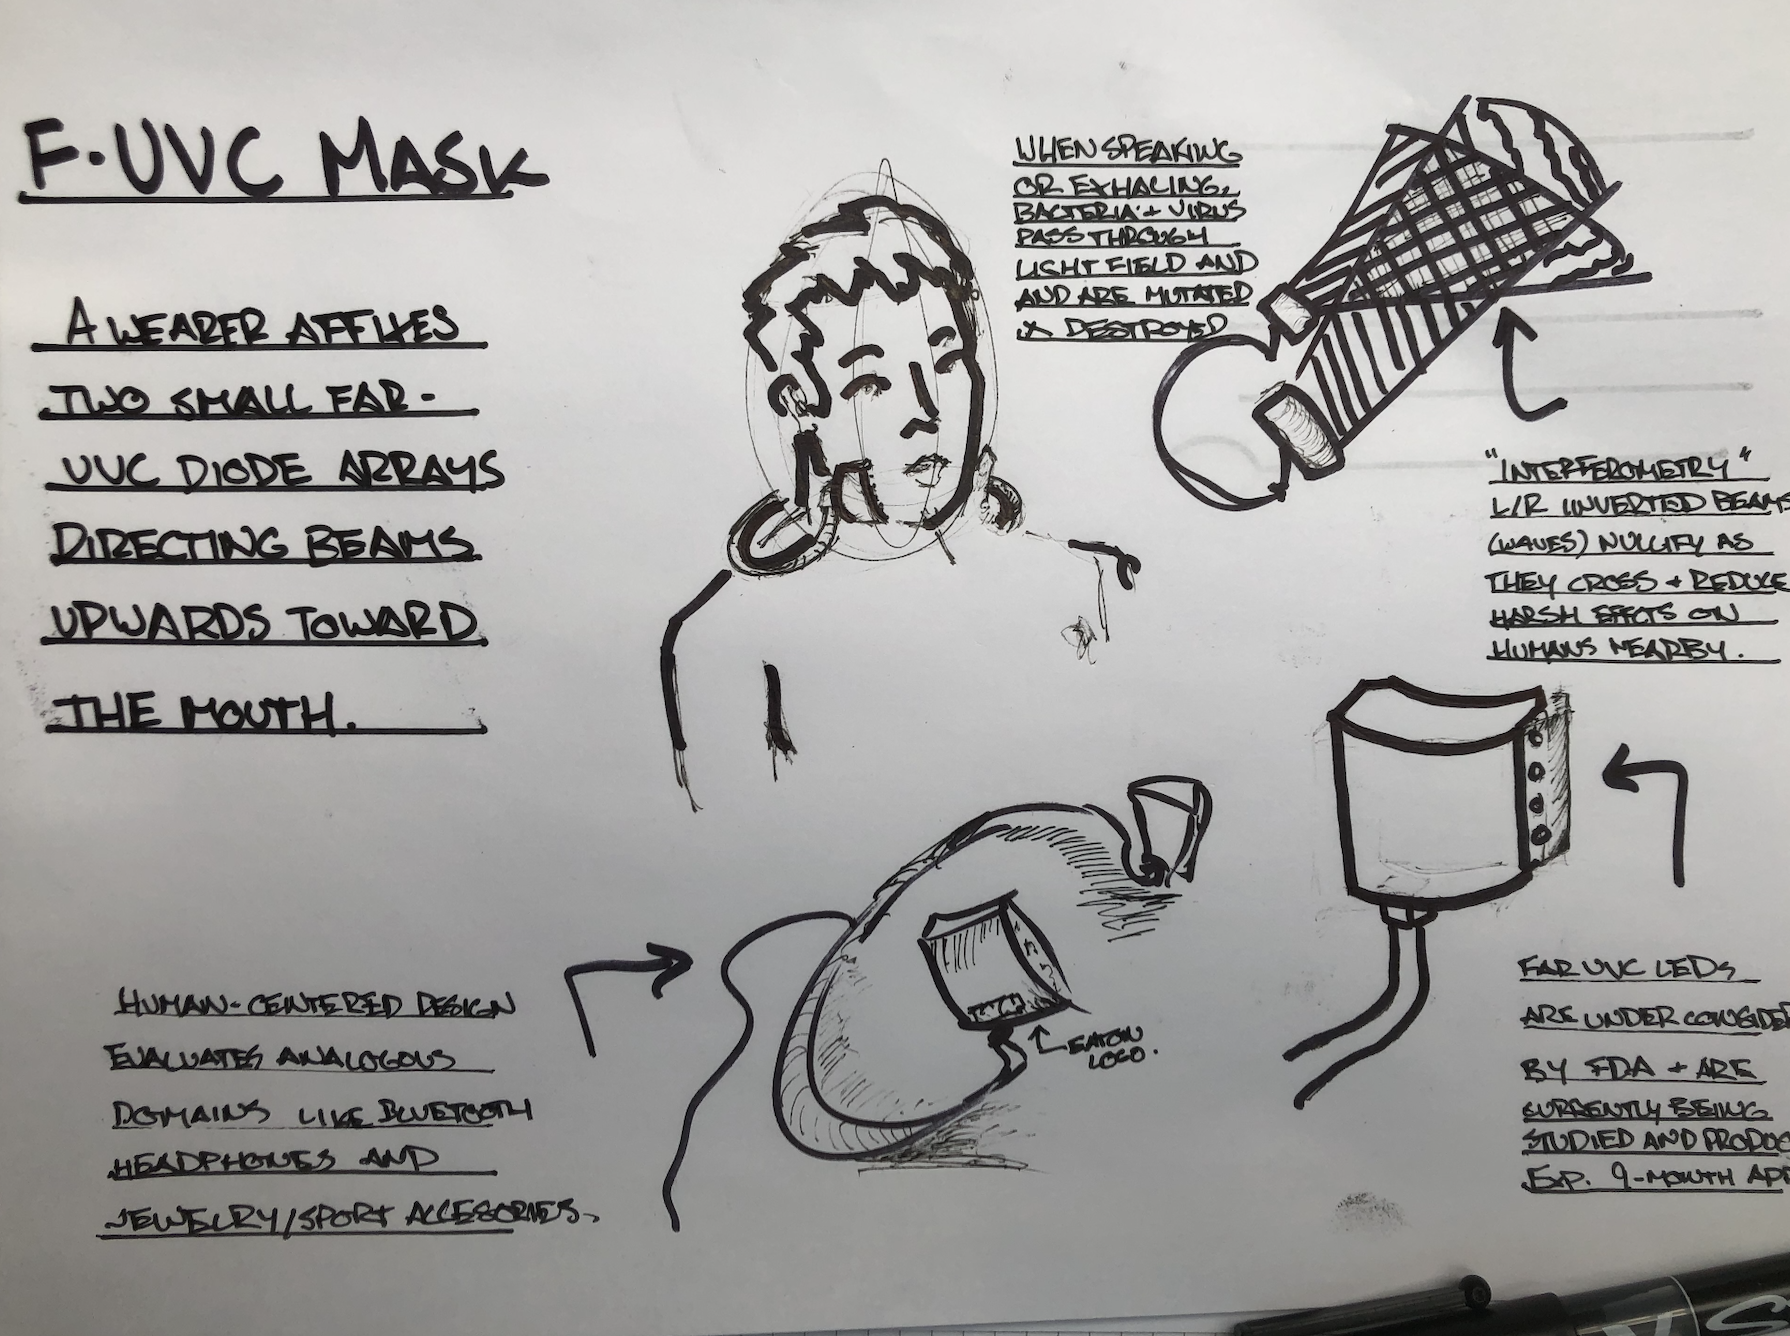 F·UVC MASK
A WEARER AFFIXES
TWO SMALL FAR-
UVC DIODE ARRAYS
DIRECTING BEAMS
UPWARDS TOWARD
THE MOUTH.
WHEN SPEAKING
OR EXHALING,
BACTERIA + VIRUS
PASS THROUGH
LIGHT FIELD AND
AND ARE MUTATED
DESTROYED
"INTERFEROMETRY"
L/R INVERTED BEAMS
(WAVES) NULLIFY AS
THEY CROSS + REDUCE
HARSH EFFECTS ON
HUMANS NEARBY.
HUMAN-CENTERED DESIGN
EVALUATES ANALOGOUS
DOMAINS LIKE BLUETOOTH
HEADPHONES AND
JEWELRY/SPORT ACCESORIES.
EATON
LOGO.
FAR UVC LEDS
ARE UNDER CONSIDER
BY FDA + ARE
CURRENTLY BEING
STUDIED AND PRODUC
EXP. 9-MONTH APP